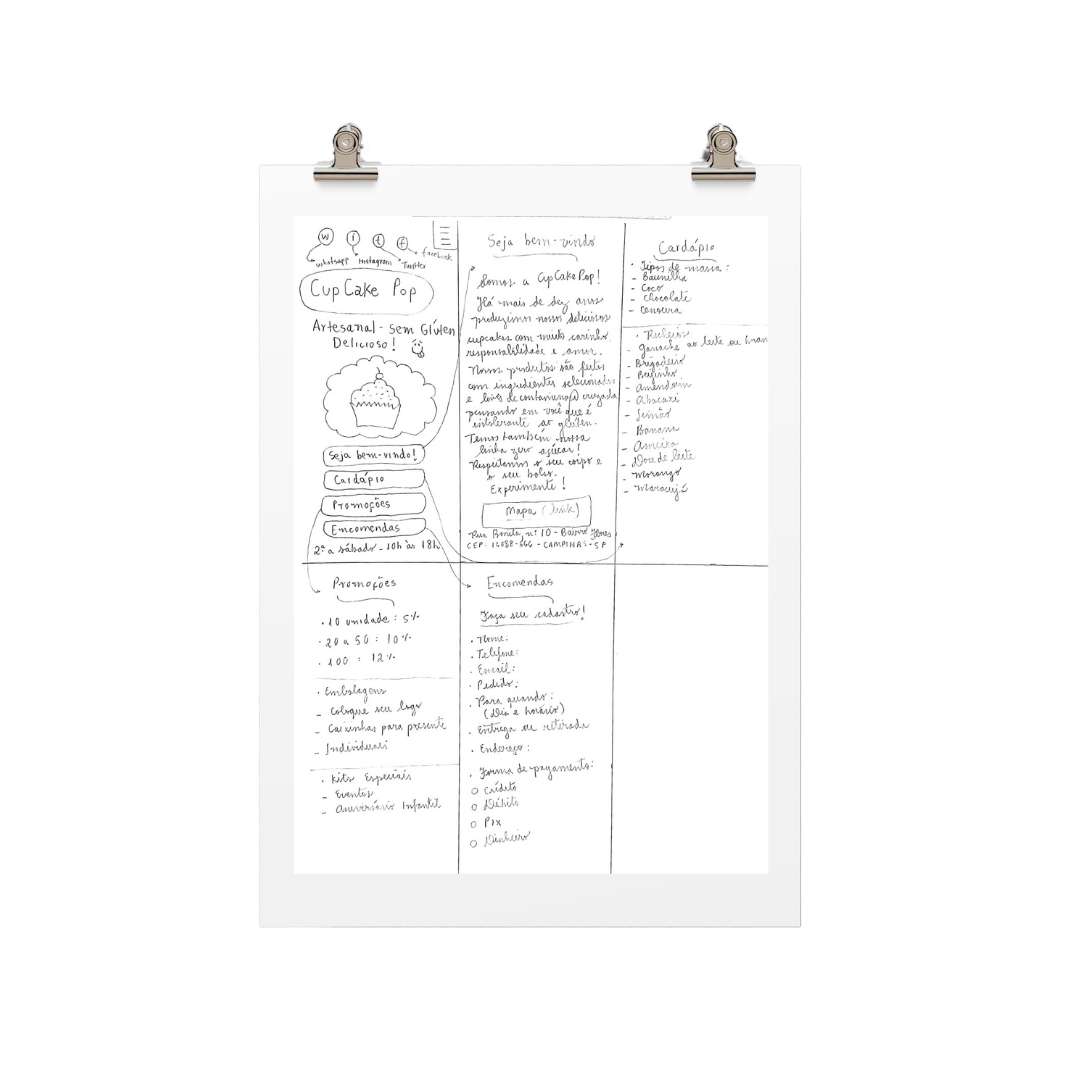 W i t f
whatsapp instagram Twitter facebook
CupCake Pop
Artesanal - Sem Glúten
Delicioso!
Seja bem-vindo!
Cardápio
Promoções
Encomendas
2ª a sábado - 10h às 18h
Seja bem-vindo
Somos a CupCakePop!
Há mais de dez anos
produzimos nossos deliciosos
cupcakes com muito carinho,
responsabilidade e amor.
Nossos produtos são feitos
com ingredientes selecionados
e livres de contaminação cruzada
pensando em você que é
intolerante ao glúten.
Temos também nossa
linha zero açúcar!
Respeitamos o seu corpo e
o seu bolso.
Experimente!
Mapa (link)
Rua Bonita, nº 10 - Bairro Flores
CEP: 14088-666 - CAMPINAS - SP
Cardápio
• Tipos de massa:
- Baunilha
- Coco
- Chocolate
- Cenoura
• Recheios
- ganache ao leite ou bran
- Brigadeiro
- Beijinho
- Amendoim
- Abacaxi
- Limão
- Banana
- Ameixa
- Doce de leite
- Morango
- Maracujá
Promoções
• 10 unidade: 5%
• 20 a 50: 10%
• 100: 12%
• Embalagens
- Coloque seu logo
- Caixinhas para presente
- Individuais
• Kits Especiais
- Eventos
- Aniversário Infantil
Encomendas
Faça seu cadastro!
• Nome:
• Telefone:
• Email:
• Pedido:
• Para quando:
(Dia e horário)
• Entrega ou retirada
• Endereço:
• Forma de pagamento:
○ Crédito
○ Débito
○ Pix
○ Dinheiro